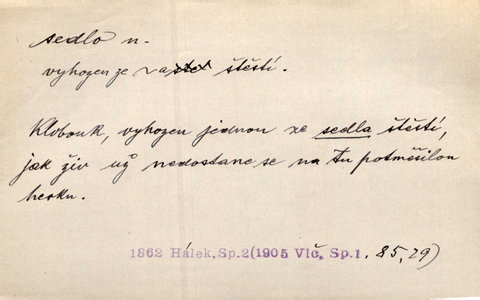 sedlo n.
vyhozen ze štěstí.
Klobouk, vyhozen jednou ze sedla štěstí,
jak živ už nedostane se na tu potměšilou
herku.
1862 Hálek, Sp.2(1905 Vlč, Sp.1. 85, 29)